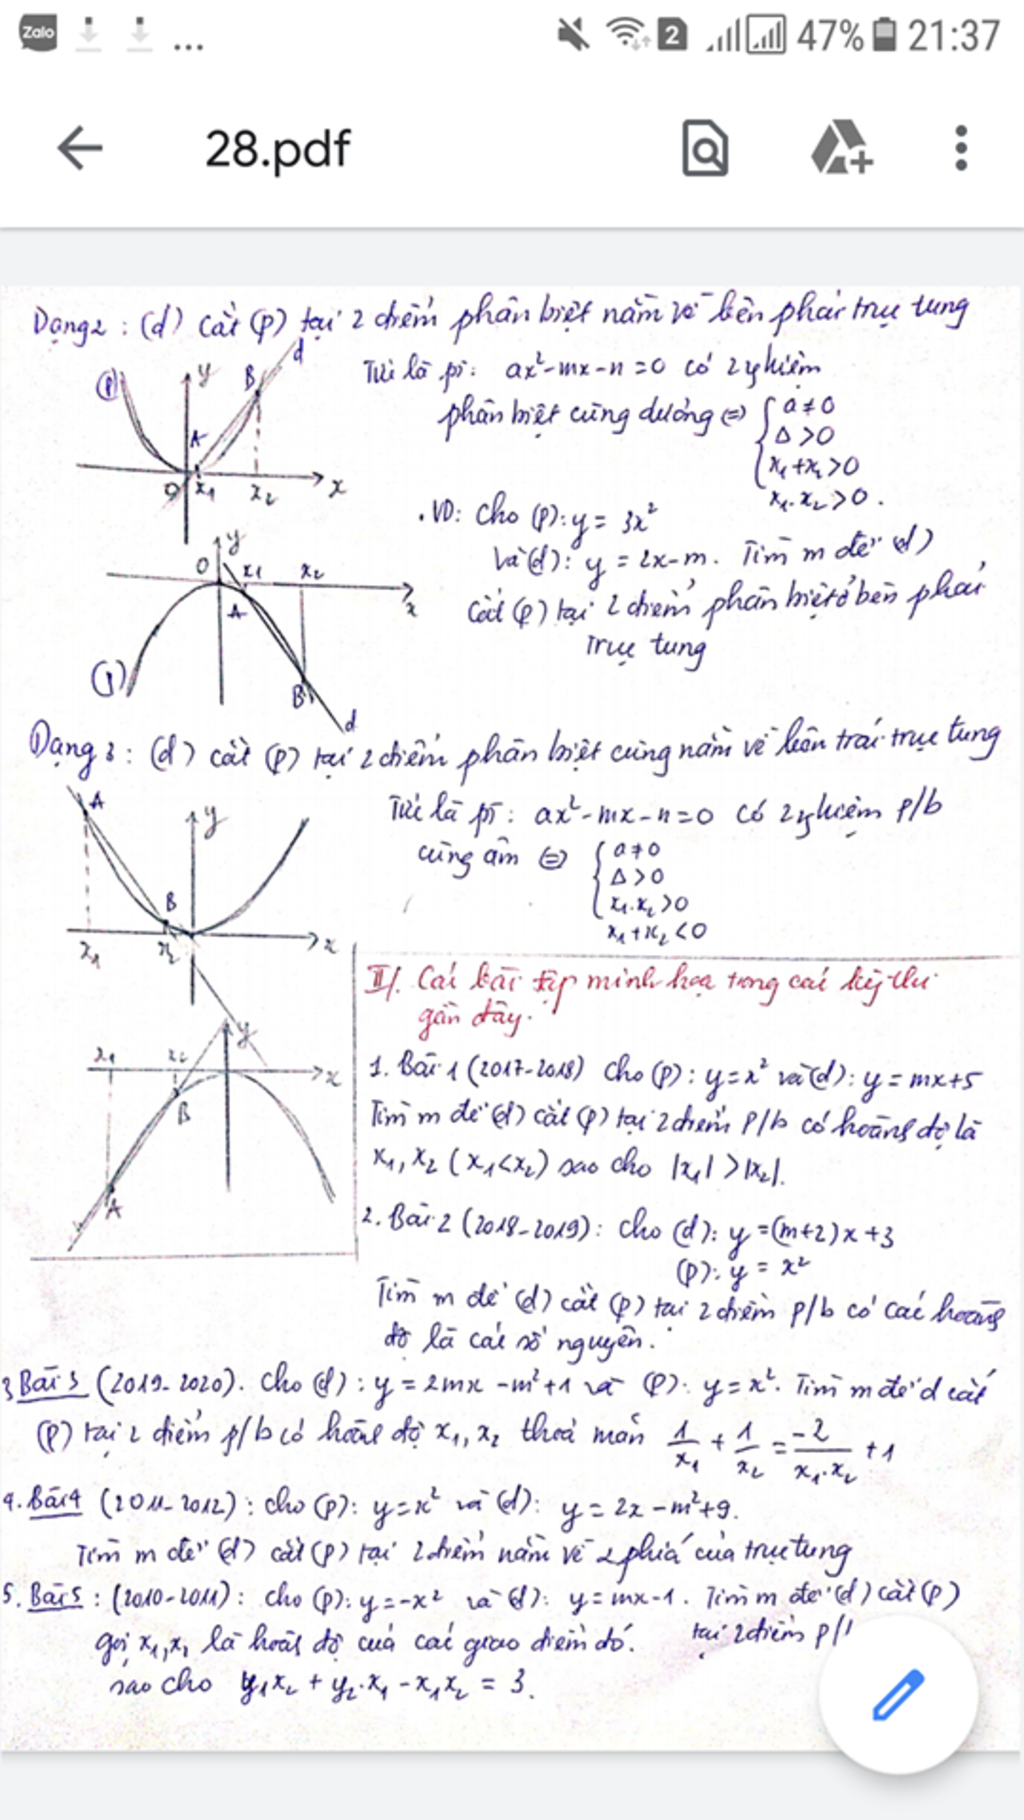 Zalo ... 2 47% 21:37
28.pdf
Dạng 2 : (d) cắt (P) tại 2 điểm phân biệt nằm về bên phải trục tung
(P) y B d
A
O x1 x2 x
Tức là pt: ax²-mx-n=0 có 2 nghiệm
phân biệt cùng dương ⇔ { a≠0
Δ>0
x1+x2>0
x1.x2>0.
. VD: cho (P): y = 3x²
và (d): y = 2x-m. Tìm m để (d)
cắt (P) tại 2 điểm phân biệt ở bên phải
trục tung
y
O x1 x2
x
A
(P)
B
d
Dạng 3 : (d) cắt (P) tại 2 điểm phân biệt cùng nằm về bên trái trục tung
A y
B
x1 x2 x
Tức là pt: ax²-mx-n=0 có 2 nghiệm p/b
cùng âm ⇔ { a≠0
Δ>0
x1.x2>0
x1+x2<0
y
x1 x2 x
B
A
II/. Các bài tập minh họa trong các kỳ thi
gần đây.
1. Bài 1 (2017-2018) cho (P): y=x² và (d): y = mx+5
Tìm m để (d) cắt (P) tại 2 điểm p/b có hoành độ là
x1, x2 (x1<x2) sao cho |x1| > |x2|.
2. Bài 2 (2018-2019): cho (d): y =(m+2)x+3
(P): y = x²
Tìm m để (d) cắt (P) tại 2 điểm p/b có các hoành
độ là các số nguyên.
3 Bài 3 (2019-2020). cho (d): y = 2mx -m²+1 và (P): y=x². Tìm m để d cắt
(P) tại 2 điểm p/b có hoành độ x1, x2 thoả mãn 1/x1 + 1/x2 = -2/x1.x2 + 1
4. Bài 4 (2011-2012): cho (P): y=x² và (d): y = 2x -m²+9.
Tìm m để (d) cắt (P) tại 2 điểm nằm về 2 phía của trục tung
5. Bài 5 : (2010-2011): cho (P): y=-x² và (d): y=mx-1. Tìm m để (d) cắt (P)
tại 2 điểm
gọi x1, x2 là hoành độ của các giao điểm đó.
sao cho y1x2 + y2.x1 - x1x2 = 3.